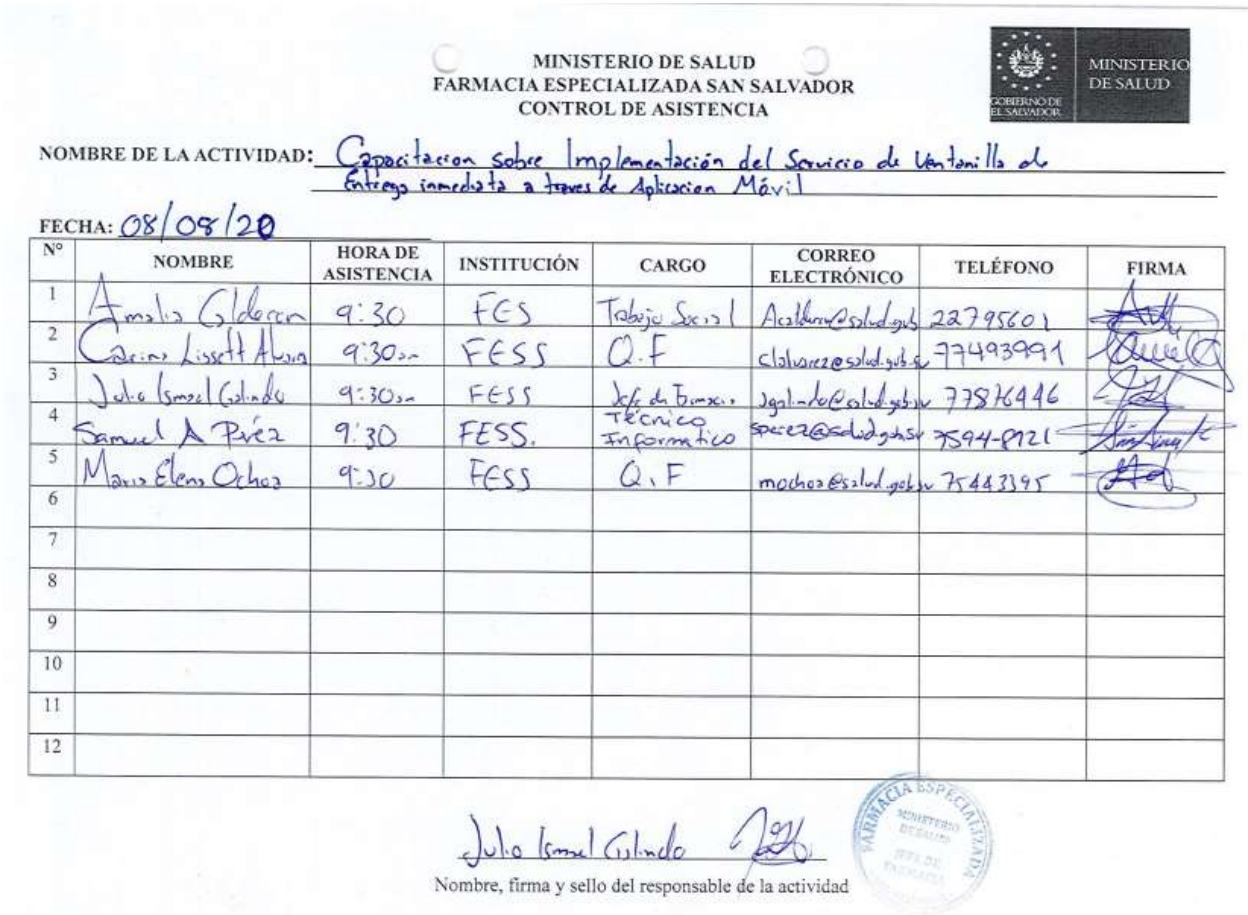 MINISTERIO DE SALUD
FARMACIA ESPECIALIZADA SAN SALVADOR
CONTROL DE ASISTENCIA
GOBIERNO DE
EL SALVADOR
MINISTERIO
DE SALUD
NOMBRE DE LA ACTIVIDAD: Capacitacion sobre Implementación del Servicio de Ventanilla de
Entrega inmediata a traves de Aplicacion Móvil
FECHA: 08/08/20
N° NOMBRE HORA DE ASISTENCIA INSTITUCIÓN CARGO CORREO ELECTRÓNICO TELÉFONO FIRMA
1 Amalia Calderon 9:30 FES Trabajo Social 22795601
2 Carina Lissett 9:30am FESS Q.F clalvarez@salud.gob.sv 77493991
3 Julio Ismael Galindo 9:30am FESS Jefe de Farmacia jgalindo@salud.gob.sv 77876446
4 Samuel A Pérez 9:30 FESS. Técnico Informatico sperez@salud.gob.sv 7594-8921
5 Maria Elena Ochoa 9:30 FESS Q.F mochoa@salud.gob.sv 75443395
6
7
8
9
10
11
12
Julio Ismael Galindo
Nombre, firma y sello del responsable de la actividad
FARMACIA ESPECIALIZADA
MINISTERIO
DE SALUD
JEFE DE
FARMACIA